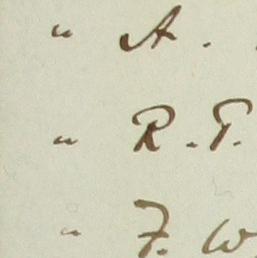 " A.
" R. T.
" F. W.